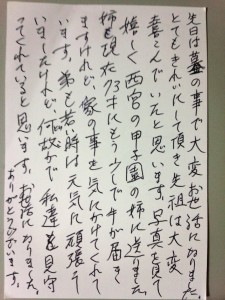 先日は墓の事で大変お世話になりました。
とてもきれいにして頂き先祖は大変
喜こんでいたと思います。写真を見て
嬉しく西宮の甲子園の姉に送りました
姉も現在73才にもう少しで手が届き
ますけれど、家の事を気にかけてくれて
います。弟も若い時は元気に頑張って
いましたけれど、何処かで私達を見守
ってくれていると思います。お世話になりました。
ありがとうございます。